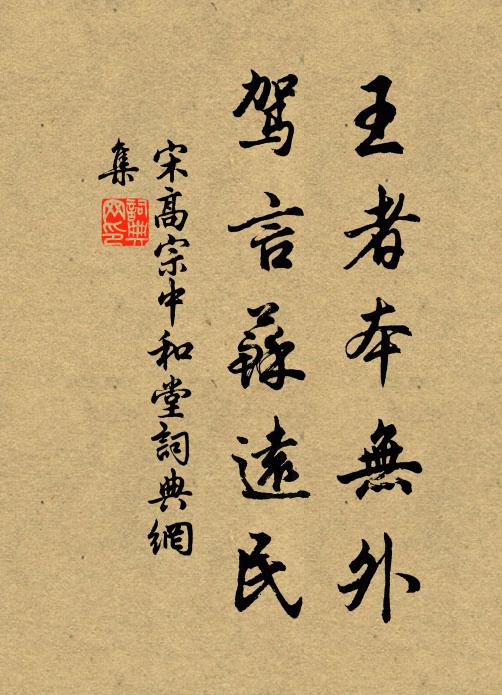 王者本無外
駕言蘇遠民
宋高宗中和堂詞典網
集
詞典
网印